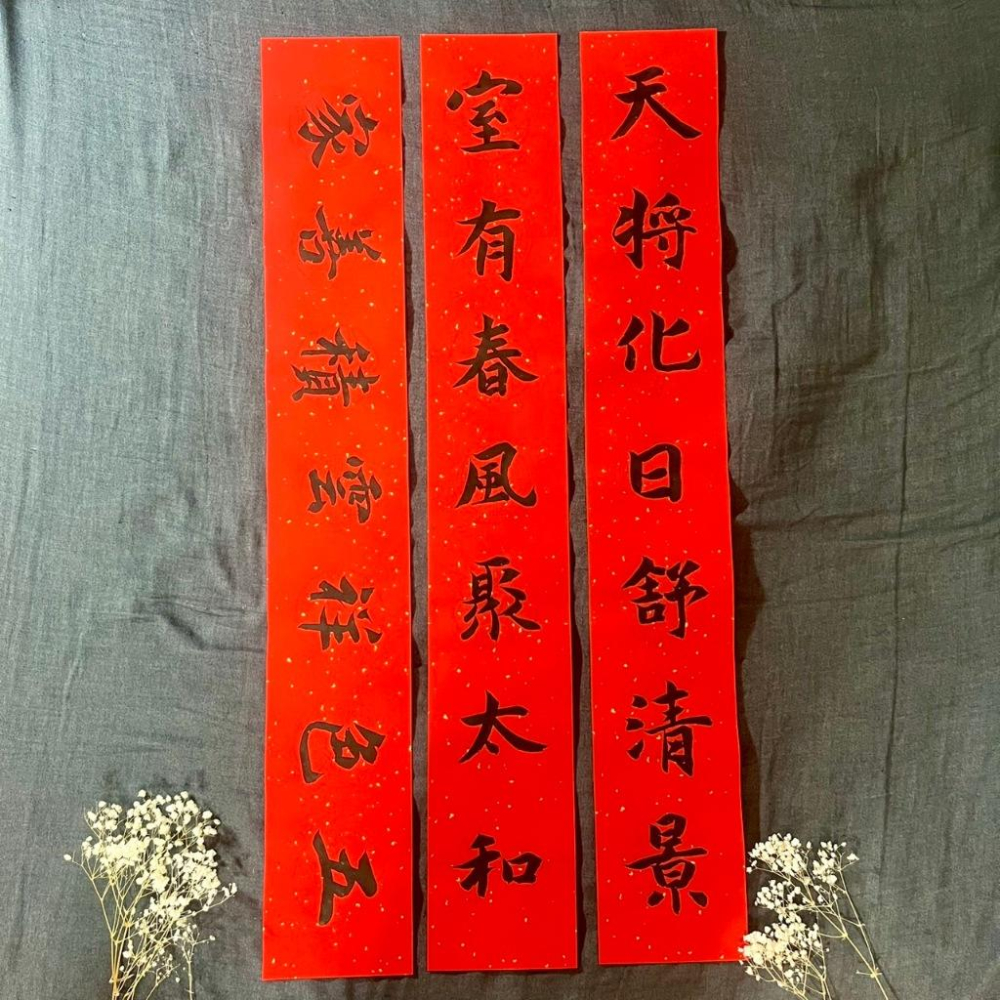 天將化日舒清景
室有春風聚太和
五色祥雲積善家